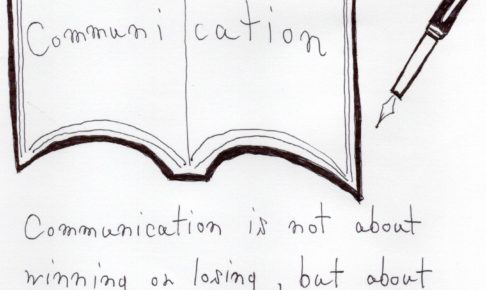 Communi cation
Communication is not about
winning or losing, but about